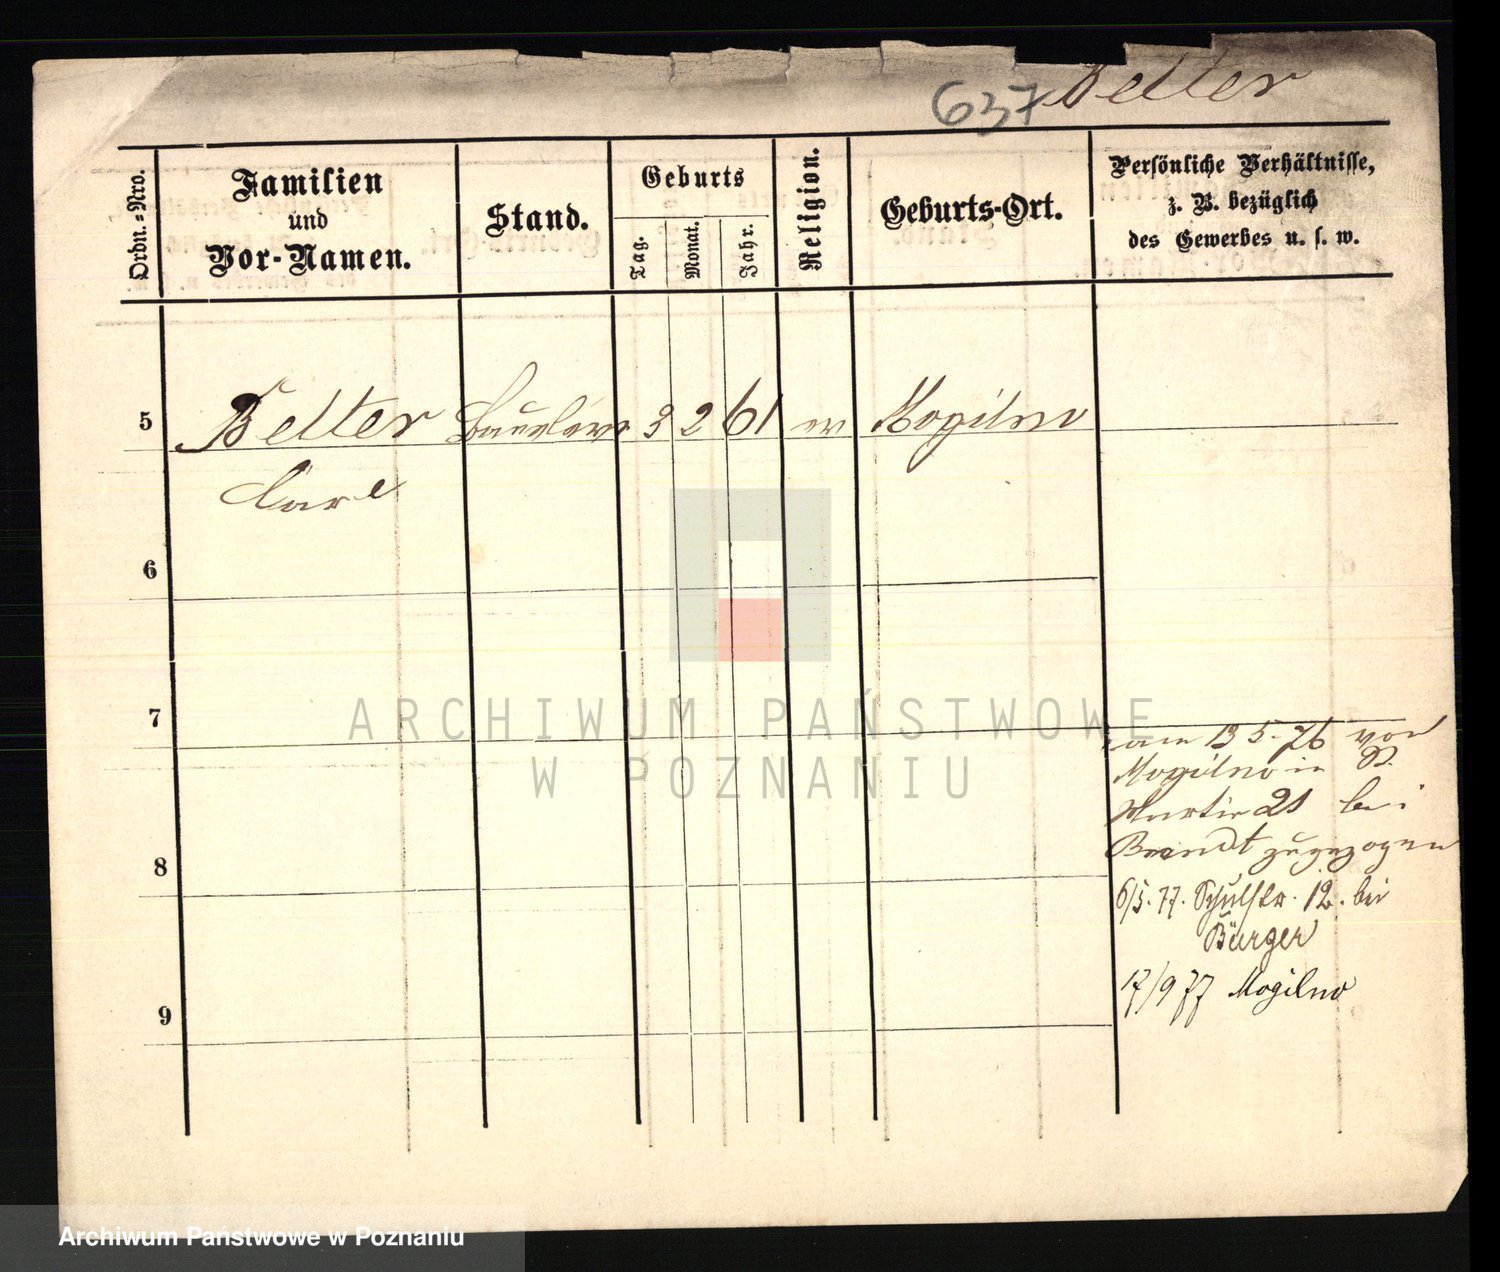 637 Belter
Ordn.=Nro.
Familien
und
Vor-Namen.
Stand.
Geburts
Tag.
Monat.
Jahr.
Religion.
Geburts-Ort.
Persönliche Verhältnisse,
z. B. bezüglich
des Gewerbes u. s. w.
5 Belter 3 2 61 ev Mogilno
Carl
6
7
am 13 5. 76 von
Mogilno in St.
Martin 21 bei
Brandt zugezogen
8
6/5. 77. Schulstr. 12. bei
Bürger
17/9 77 Mogilno
9
ARCHIWUM PAŃSTWOWE
W POZNANIU
Archiwum Państwowe w Poznaniu